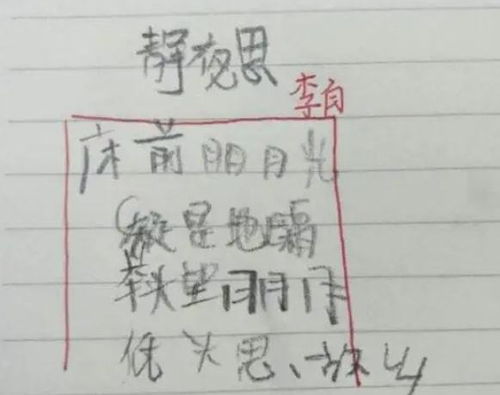 静夜思
李白
床前明月光
疑是地霜
举头望明月
低头思、故乡